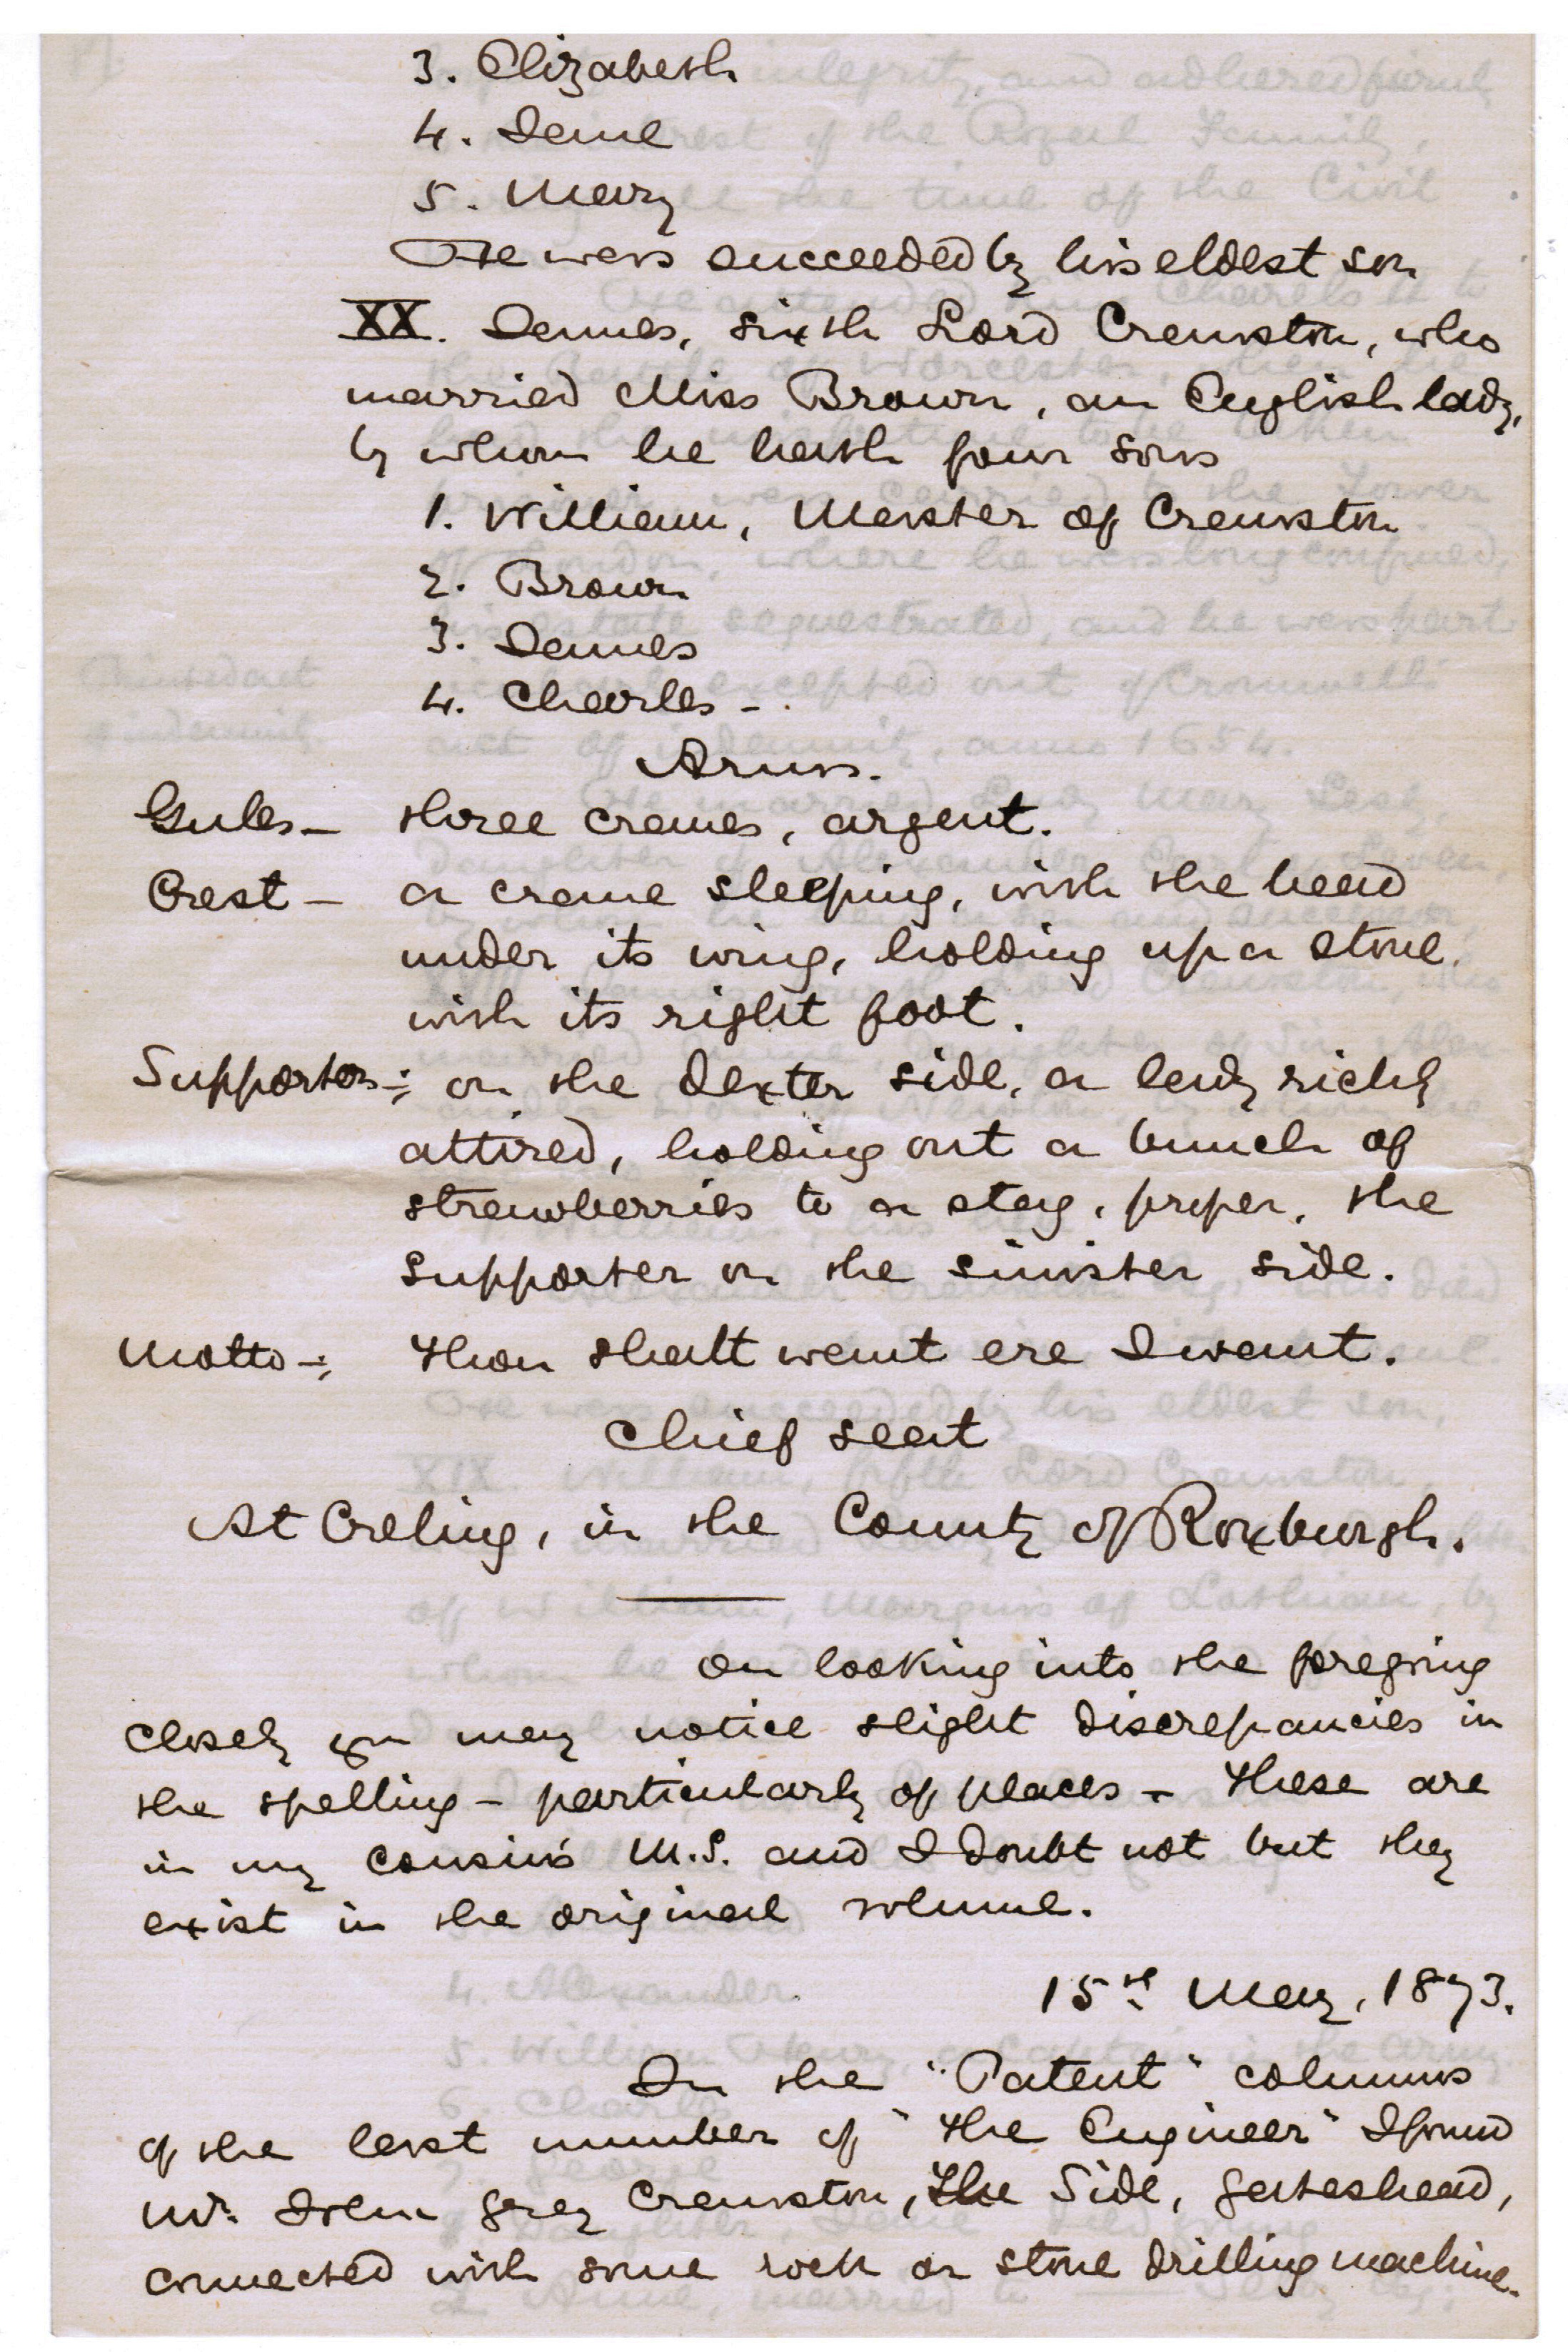 3. Elizabeth
4. Jane
5. Mary
He was succeeded by his eldest son
XX. James, sixth Lord Cranston, who
married Miss Brown, an English lady,
by whom he hath four sons
1. William, Master of Cranston
2. Brown
3. James
4. Charles -.
Arms.
Gules - three cranes, argent.
Crest - a crane sleeping, with the head
under its wing, holding up a stone.
with its right foot.
Supporters -; on the dexter side, a lady richly
attired, holding out a bunch of
strawberries to a stag, proper, the
supporter on the sinister side.
Motto -; Thou shalt want ere I want.
Chief seat
At Creling, in the County of Roxburgh.
On looking into the foregoing
closely you may notice slight discrepancies in
the spelling - particularly of places - these are
in my cousin's M.S. and I doubt not but they
exist in the original volume.
15th May, 1873.
In the "Patent" columns
of the last number of "The Engineer" I found
Mr. John Grey Cranston, The Side, Gateshead,
connected with some rock or stone drilling machine.